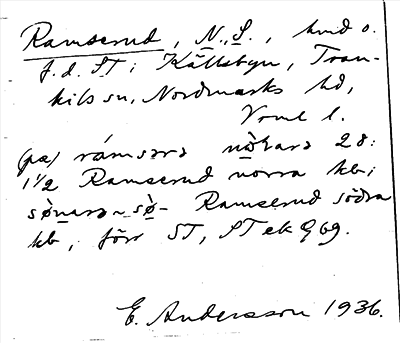 Ramserud, N., S., hmd o.
f.d. ST i Källsbyn, Tran-
kils sn, Nordmarks hd,
Vrml l.
(pæ) ràmsərə nòkarə 28:
1½ Ramserud norra kb;
sø̀nərə ~ sø̀- Ramserud södra
kb, förr ST, ST ek 9 69.
E. Andersson 1936.